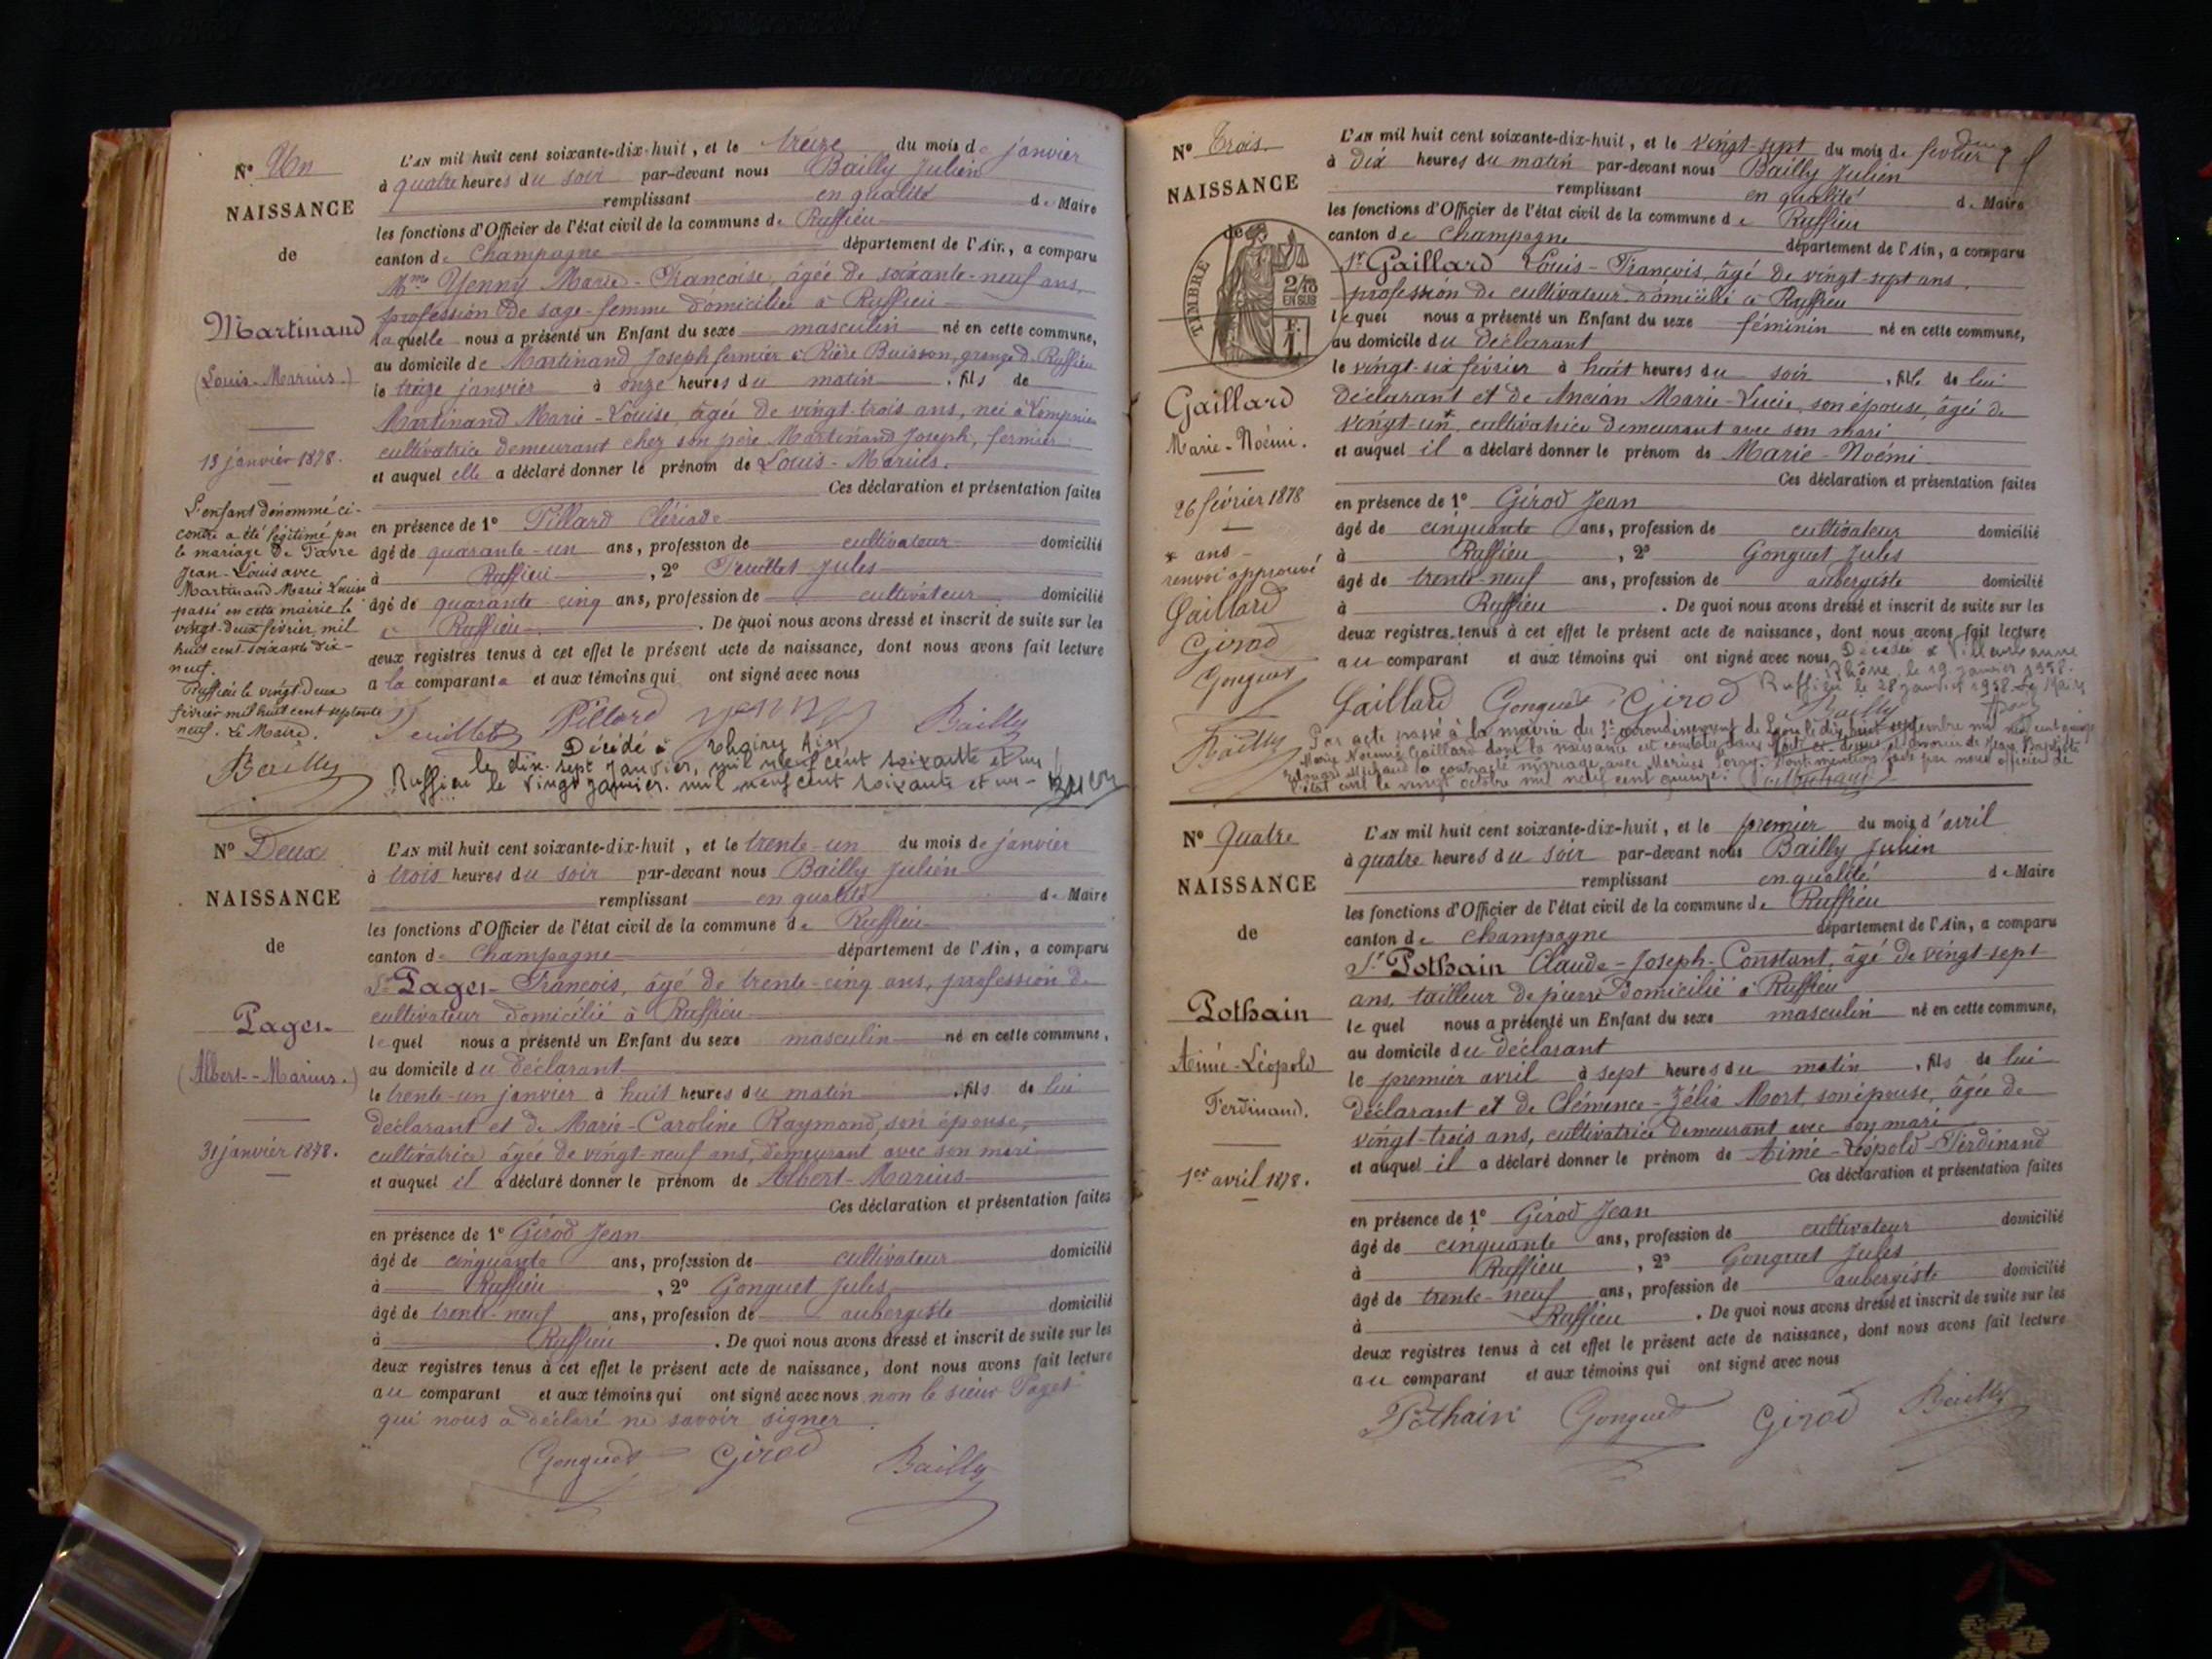 N° Un
NAISSANCE
de
Martinand
(Louis-Marius.)
13 janvier 1878.
L'enfant dénommé ci-
contre a été légitimé par
le mariage de Favre
Jean-Louis avec
Martinand Marie Louise
passé en cette mairie le
vingt-deux février mil
huit cent soixante dix-
neuf.
Ruffieu le vingt-deux
février mil huit cent septante
neuf. Le Maire.
Bailly
L'AN mil huit cent soixante-dix-huit, et le treize du mois de janvier
à quatre heures du soir par-devant nous Bailly Julien
remplissant en qualité de Maire
les fonctions d'Officier de l'état civil de la commune de Ruffieu
canton de Champagne département de l'Ain, a comparu
Mme Yenny Marie-Françoise, âgée de soixante-neuf ans,
profession de sage-femme domiciliée à Ruffieu
laquelle nous a présenté un Enfant du sexe masculin né en cette commune,
au domicile de Martinand Joseph fermier à Rière Buisson, grange d. Ruffieu
le treize janvier à onze heures du matin, fils de
Martinand Marie-Louise, âgée de vingt-trois ans, née à Lompnieu
cultivatrice demeurant chez son père Martinand Joseph, fermier
et auquel elle a déclaré donner le prénom de Louis-Marius.
Ces déclaration et présentation faites
en présence de 1° Pillard Clériade
âgé de quarante-un ans, profession de cultivateur domicilié
à Ruffieu, 2° Teuillet Jules
âgé de quarante-cinq ans, profession de cultivateur domicilié
à Ruffieu. De quoi nous avons dressé et inscrit de suite sur les
deux registres tenus à cet effet le présent acte de naissance, dont nous avons fait lecture
a la comparante et aux témoins qui ont signé avec nous
Teuillet Pillard yenny Bailly
Décédé à Thoiry Ain
le dix-sept janvier, mil neuf cent soixante et un
Ruffieu le vingt janvier. mil neuf cent soixante et un-
N° Deux
NAISSANCE
de
Pages.
(Albert-Marius.)
31 janvier 1878.
L'AN mil huit cent soixante-dix-huit, et le trente-un du mois de janvier
à trois heures du soir par-devant nous Bailly Julien
remplissant en qualité de Maire
les fonctions d'Officier de l'état civil de la commune de Ruffieu
canton de Champagne département de l'Ain, a comparu
Sr Pages François, âgé de trente-cinq ans, profession de
cultivateur domicilié à Ruffieu
lequel nous a présenté un Enfant du sexe masculin né en cette commune,
au domicile du déclarant
le trente-un janvier à huit heures du matin, fils de lui
déclarant et de Marie-Caroline Raymond, son épouse,
cultivatrice âgée de vingt-neuf ans, demeurant avec son mari
et auquel il a déclaré donner le prénom de Albert-Marius
Ces déclaration et présentation faites
en présence de 1° Girod Jean
âgé de cinquante ans, profession de cultivateur domicilié
à Ruffieu, 2° Gonguet Jules
âgé de trente-neuf ans, profession de aubergiste domicilié
à Ruffieu. De quoi nous avons dressé et inscrit de suite sur les
deux registres tenus à cet effet le présent acte de naissance, dont nous avons fait lecture
au comparant et aux témoins qui ont signé avec nous non le sieur Pages
qui nous a déclaré ne savoir signer.
Gonguet Girod Bailly
N° Trois.
NAISSANCE
de
TIMBRE
2/10
EN SUS
F.
1
Gaillard
Marie-Noémi.
26 février 1878
* ans
renvoi approuvé
Gaillard
Girod
Gonguet
Bailly
L'AN mil huit cent soixante-dix-huit, et le vingt-sept du mois de février
à dix heures du matin par-devant nous Bailly Julien
remplissant en qualité de Maire
les fonctions d'Officier de l'état civil de la commune de Ruffieu
canton de Champagne département de l'Ain, a comparu
Sr Gaillard Louis-François, âgé de vingt-sept ans,
profession de cultivateur domicilié à Ruffieu
lequel nous a présenté un Enfant du sexe féminin né en cette commune,
au domicile du déclarant
le vingt-six février à huit heures du soir, fille de lui
déclarant et de Ancian Marie-Lucie, son épouse, âgée de
vingt-un * cultivatrice demeurant avec son mari
et auquel il a déclaré donner le prénom de Marie-Noémi
Ces déclaration et présentation faites
en présence de 1° Girod Jean
âgé de cinquante ans, profession de cultivateur domicilié
à Ruffieu, 2° Gonguet Jules
âgé de trente-neuf ans, profession de aubergiste domicilié
à Ruffieu. De quoi nous avons dressé et inscrit de suite sur les
deux registres tenus à cet effet le présent acte de naissance, dont nous avons fait lecture
au comparant et aux témoins qui ont signé avec nous
Décédée à Villeurbanne
Rhône le 19 janvier 1958.
Ruffieu le 28 janvier 1958 Le Maire
Gaillard Gonguet Girod Bailly
Par acte passé à la mairie du 3e arrondissement de Lyon le dix huit septembre mil neuf cent quinze
Marie Noémie Gaillard dont la naissance est constatée dans l'acte ci-dessus et divorcée de Jean Baptiste
Edouard a contracté mariage avec Marius Dont mention faite par nous officier de
l'état civil le vingt octobre mil neuf cent quinze.
N° Quatre
NAISSANCE
de
Pothain
Aimé-Léopold
Ferdinand.
1er avril 1878.
L'AN mil huit cent soixante-dix-huit, et le premier du mois d'avril
à quatre heures du soir par-devant nous Bailly Julien
remplissant en qualité de Maire
les fonctions d'Officier de l'état civil de la commune de Ruffieu
canton de Champagne département de l'Ain, a comparu
Sr Pothain Claude-Joseph-Constant, âgé de vingt-sept
ans, tailleur de pierre domicilié à Ruffieu
lequel nous a présenté un Enfant du sexe masculin né en cette commune,
au domicile du déclarant
le premier avril à sept heures du matin, fils de lui
déclarant et de Clémence-Zélia Mort, son épouse, âgée de
vingt-trois ans, cultivatrice demeurant avec son mari
et auquel il a déclaré donner le prénom de Aimé-Léopold-Ferdinand
Ces déclaration et présentation faites
en présence de 1° Girod Jean
âgé de cinquante ans, profession de cultivateur domicilié
à Ruffieu, 2° Gonguet Jules
âgé de trente-neuf ans, profession de aubergiste domicilié
à Ruffieu. De quoi nous avons dressé et inscrit de suite sur les
deux registres tenus à cet effet le présent acte de naissance, dont nous avons fait lecture
au comparant et aux témoins qui ont signé avec nous
Pothain Gonguet Girod Bailly